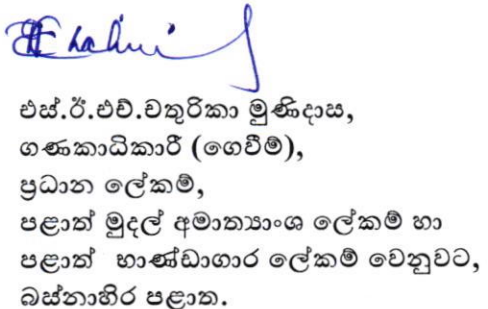 එස්.ඊ.එච්.චතුරිකා මුණිදාස,
ගණකාධිකාරී (ගෙවීම්),
ප්‍රධාන ලේකම්,
පළාත් මුදල් අමාත්‍යාංශ ලේකම් හා
පළාත් භාණ්ඩාගාර ලේකම් වෙනුවට,
බස්නාහිර පළාත.